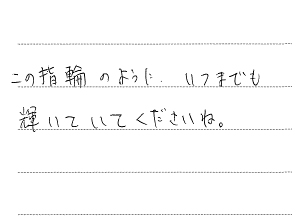 この指輪のように、いつまでも
輝いていてくださいね。